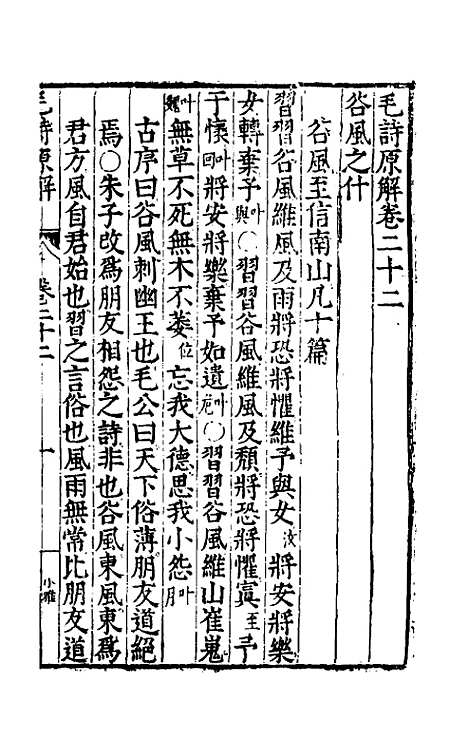 毛詩原解卷二十二
谷風之什
谷風至信南山凡十篇
習習谷風維風及雨將恐將懼維予與女汝將安將樂
女轉棄予叶與○習習谷風維風及頹將恐將懼寘至予
于懷叶回將安將樂棄予如遺叶㢮○習習谷風維山崔嵬
叶魏無草不死無木不萎位忘我大德思我小怨叶月
古序曰谷風刺幽王也毛公曰天下俗薄朋友道絕
焉○朱子改爲朋友相怨之詩非也谷風東風東爲
君方風自君始也習之言俗也風雨無常比朋友道
毛詩原解 卷二十二 一 小雅